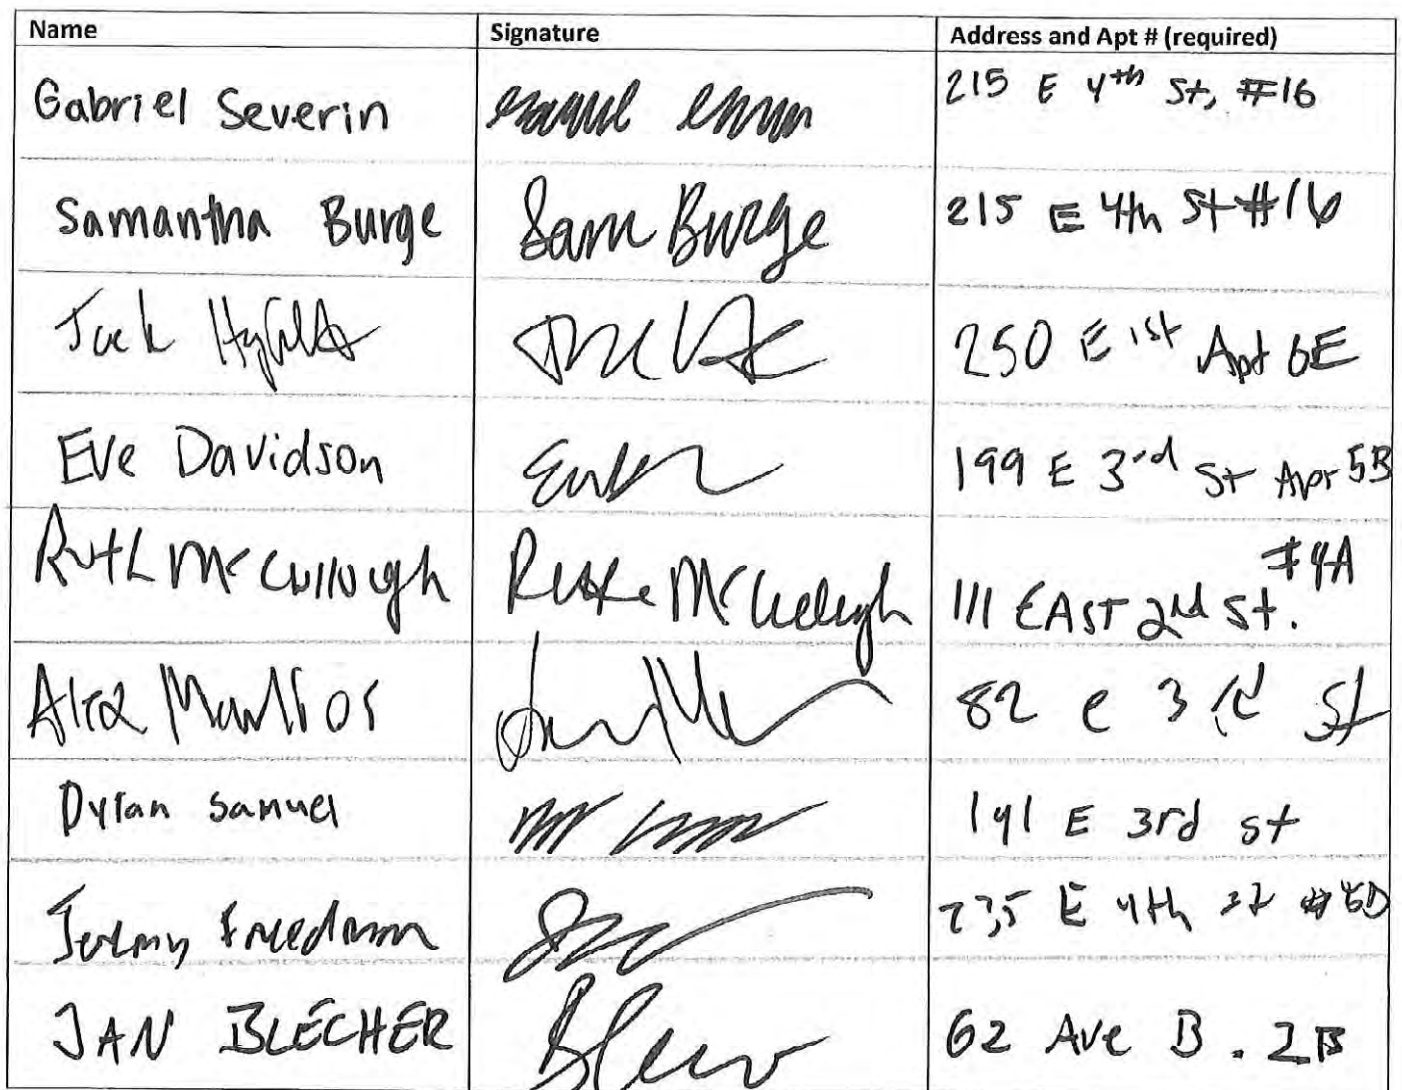 Name Signature Address and Apt # (required)
Gabriel Severin 215 E 4th St, #16
Samantha Burge Sam Burge 215 E 4th St #16
Jack 250 E 1st Apt 6E
Eve Davidson 199 E 3rd St Apt 5B
Ruth McCullough Ruth McCullough #4A
111 EAST 2nd St.
Alex 82 e 3rd St
Dylan Samuel 141 E 3rd st
Jeremy Freedman 235 E 4th St
JAN BLECHER 62 Ave B . 2B